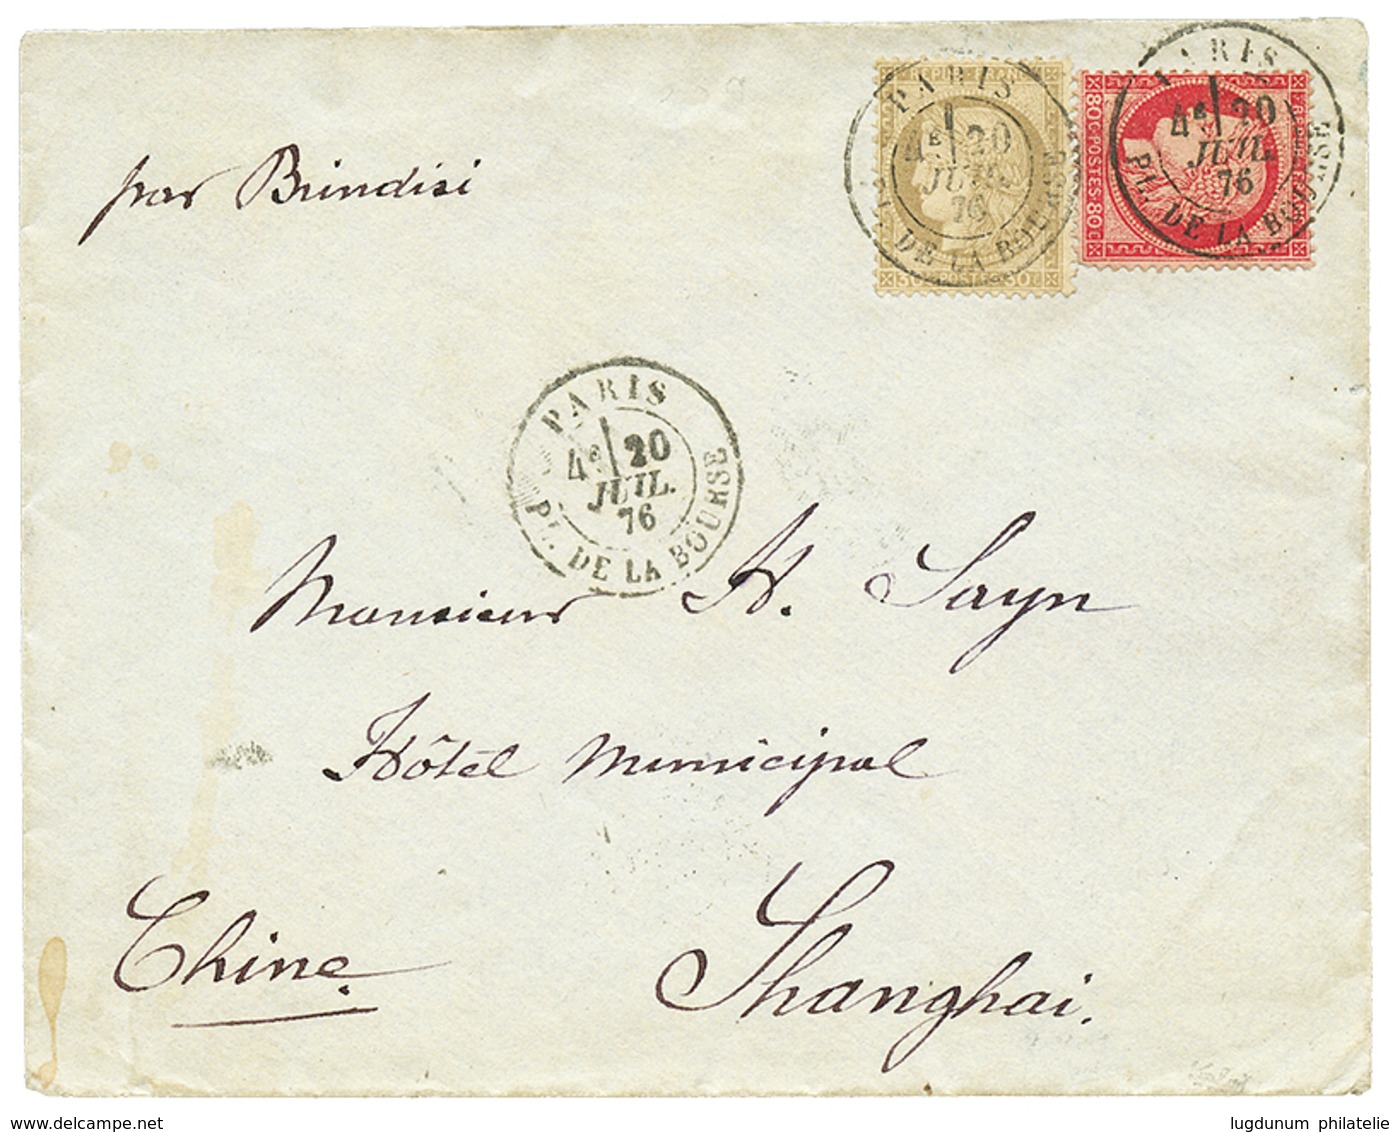 REPUB. FRANC.
30 POST 30C
80C POSTES 80C
PARIS
4E 20
JUIL.
76
PL. DE LA BOURSE
PARIS
4E 20
JUIL.
76
PL. DE LA BOURSE
par Brindisi
PARIS
4E 20
JUIL.
76
PL. DE LA BOURSE
Monsieur H. Sayn
Hôtel Municipal
Shanghai.
Chine.
www.delcampe.net
lugdunum philatelie